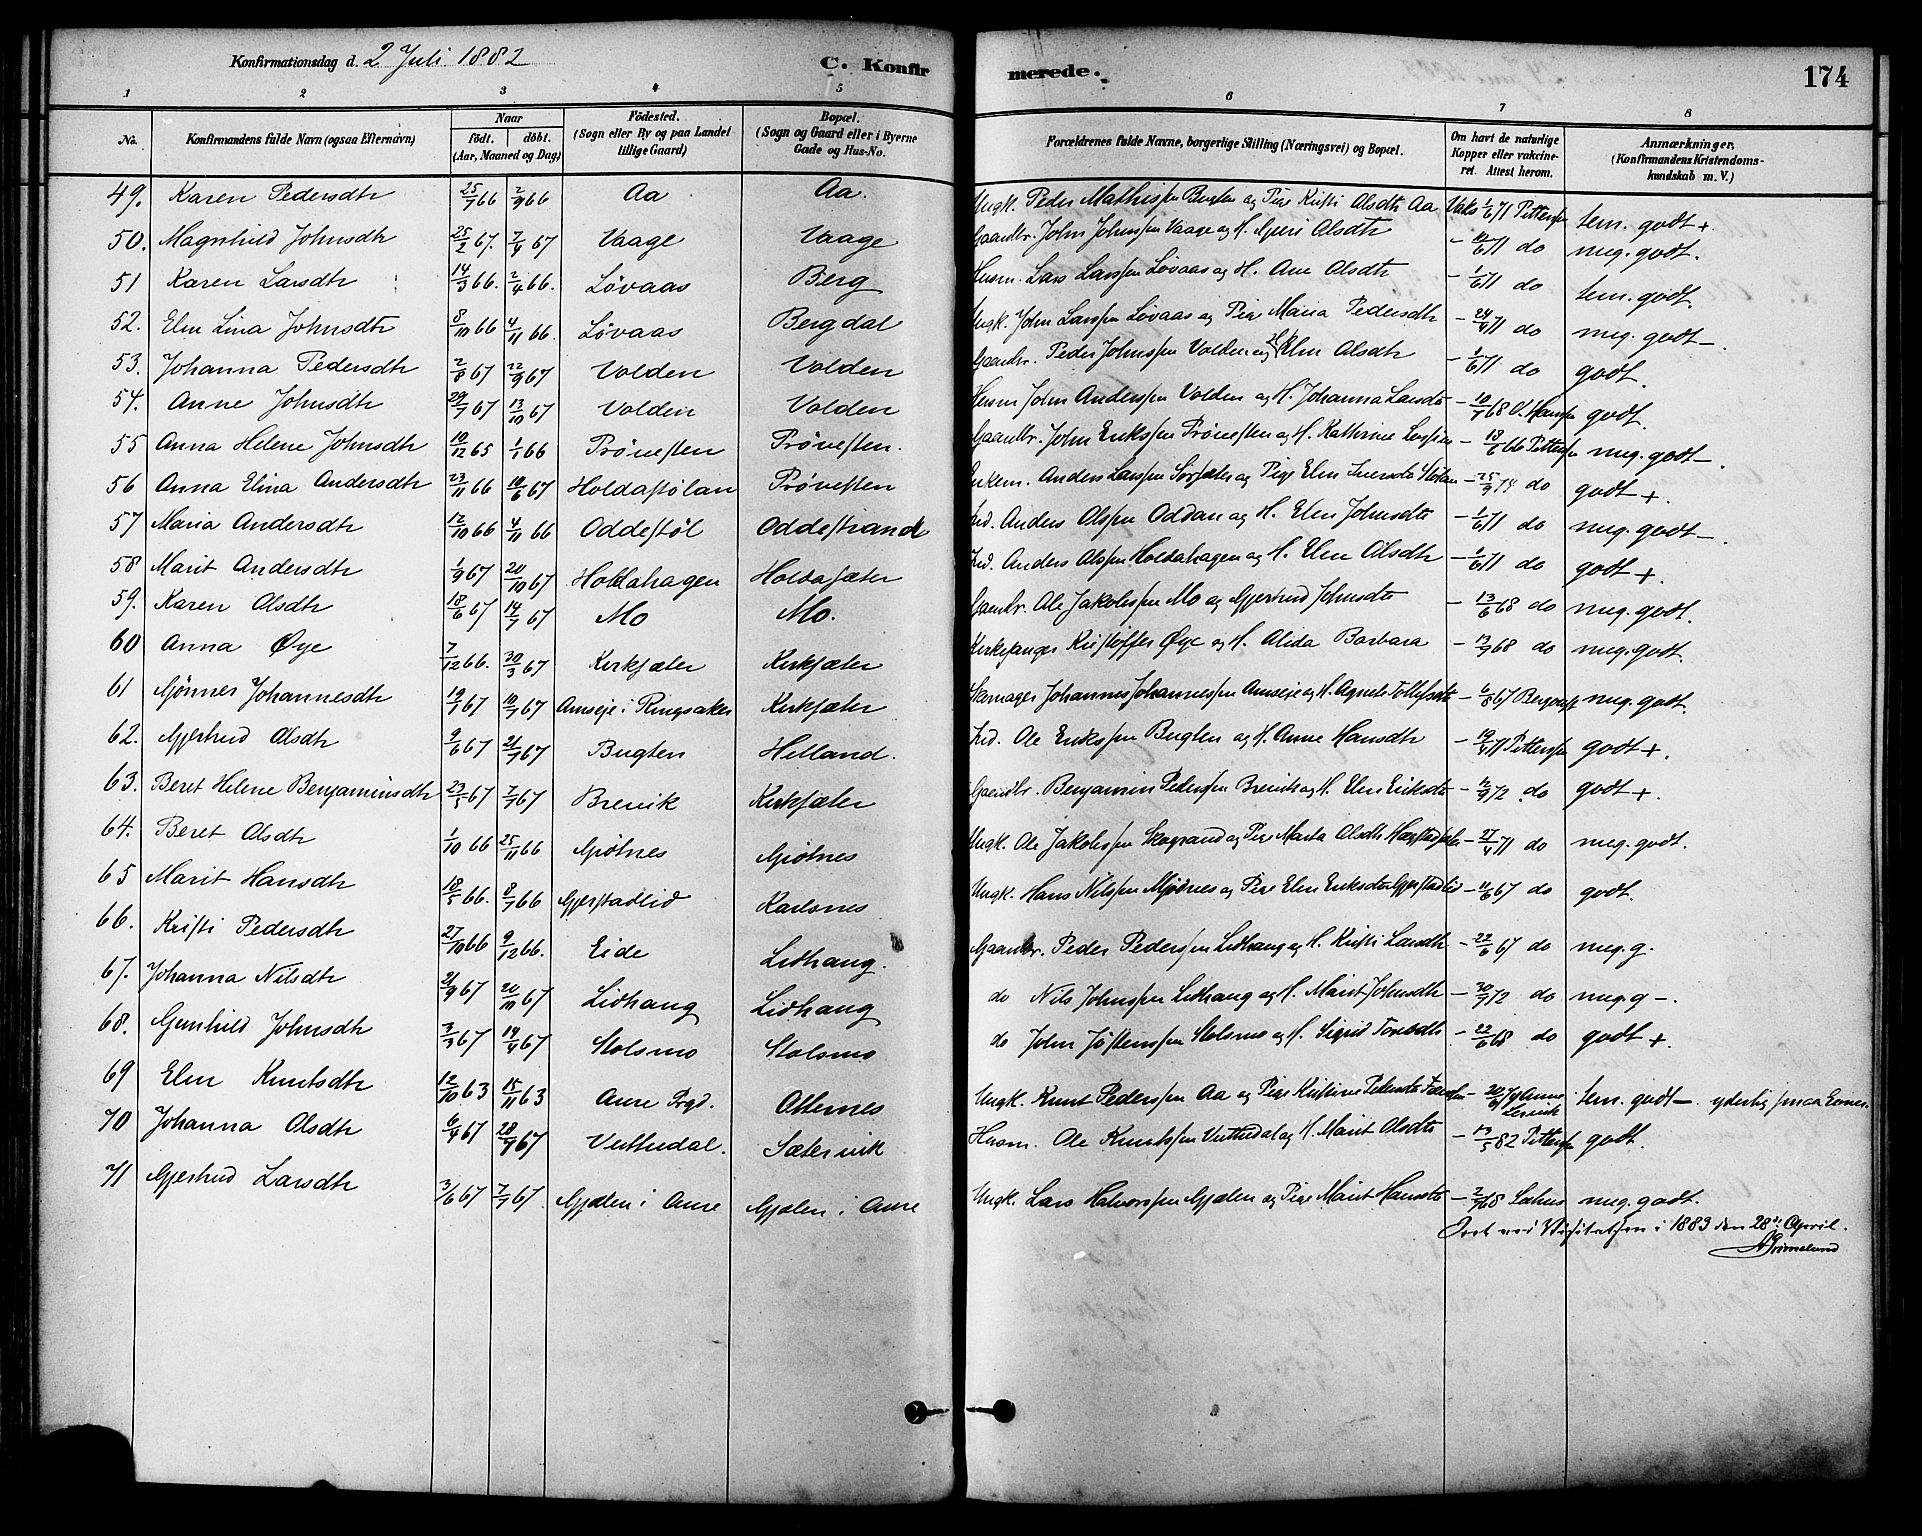 Konfirmationsdag d. 2 Juli 1882 C. Konfirmerede. 174
1 2 3 4 5 6 7 8
No. Konfirmandens fulde Navn (ogsaa Efternavn) Naar födt. döbt. (Aar, Maaned og Dag) Födested. (Sogn eller By og paa Landet tillige Gaard) Bopæl. (Sogn og Gaard eller i Byerne Gade og Hus-No. Forældrenes fulde Navne, borgerlige Stilling (Næringsvei) og Bopæl. Om havt de naturlige Kopper eller vakcineret. Attest herom. Anmærkninger, (Konfirmandens Kristendomskundskab m. V.)
49. Karen Pedersdtr 25/7 66 2/9 66 Aa Aa. Ungk. Peder Mathissen Bugten og Pige Kristi Olsdtr Aa Vaks 1/6 71 Pettersen tem. godt +.
50. Magnhild Johnsdtr 25/2 67. 7/4 67 Vaage Vaage Gaardbr. John Johnssen Vaage og H. Olsdtr - 12/6 71 do meg. godt.
51 Karen Larsdtr 14/3 66. 2/4 66. Løvaas Berg Husm. Lars Larssen Løvaas og H. Ane Olsdtr - 1/6 71 do tem. godt.
52. Elen Lina Johnsdtr 8/10 66 4/11 66. Løvaas Bergdal Ungk. John Larssen Løvaas og Pige Maria Pedersdtr - 24/9 71 do meg. godt -.
53. Johanna Pedersdtr 2/8 67 22/9 67 Volden Volden Gaardbr. Peder Johnssen Volden og H. Elen Olsdtr - 1/6 71 do godt.
54. Anne Johnsdtr 29/7 67 13/10 67 Volden Volden Husm John Anderssen Volden og H. Johanna Larsdtr - 10/7 68 O. Hanssen godt.
55 Anna Helene Johnsdtr 10/12 65 1/1 66 Prövesten Prövesten. Gaardbr. John Erikssen Prövesten og H. Kathrine - 18/6 66 Pettersen meg. godt -.
56 Anna Elina Andersdtr 23/11 66 10/6 67 Holdastølan Prövesten Enkem. Anders Larssen Sørsæter og Pige Elen Iversdtr - 25/9 74 do godt +.
57 Maria Andersdtr 12/10 66 4/11 66 Oddestöl Oddestrand Ind. Anders Olssen Oddan og H. Elen Johnsdtr - 1/6 71 do meg. godt -.
58 Marit Andersdtr 1/9 67 20/10 67 Holdahagen Holdasæter Ind. Anders Olssen Holdahagen og H. Elen Olsdtr - 1/6 71 do godt +.
59. Karen Olsdtr 18/6 67 14/7 67 Mo Mo. Gaardbr. Ole Jakobssen Mo og Gjertrud Johnsdtr - 13/6 68 do meg. godt.
60 Anna Øye 7/12 66. 30/3 67 Kirksæter Kirksæter Kirkesanger Kristoffer Øye og H. Alida Barbara - 13/7 68 do meg. godt.
61 Gjönner Johannesdtr 19/1 67 10/7 67 Amseje i Ringsaker Kirksæter Skomager Johannes Johannessen Amseje og H. Agnete Tollefsdtr - 6/8 67 meg. godt.
62. Gjertrud Olsdtr 9/6 67 21/7 67 Bugten Helland. Ind. Ole Erikssen Bugten og H. Anne Hansdtr - 19/4 71 Pettersen godt +.
63. Beret Helene Benjaminsdtr 23/5 67 7/7 67 Brevik Kirksæter Gaardbr. Benjamin Pederssen Brevik og H. Elen Eriksdtr - 12/9 72 do godt +.
64. Beret Olsdtr 1/10 66 25/11 66 Gjötnes Gjötnes Ungk. Ole Jakobssen Skograand og Pige Marta Olsdtr - 27/4 71 do meg. godt.
65 Marit Hansdtr 18/5 66. 8/7 66 Gjerstadlid Karlsnes Ungk. Hans Nilssen Mjösnes og Pige Elen Eriksdtr Gjerstadlid - 11/6 67 do godt.
66. Kristi Pedersdtr 27/10 66 9/12 66. Eide Lidhaug. Gaardbr. Peder Pederssen Lidhaug og H. Kristi Larsdtr - 22/6 67 do meg. g.
67. Johanna Nilsdtr 21/9 67 20/10 67 Lidhaug Lidhaug do Nils Johnssen Lidhaug og H. Marit Johnsdtr - 30/9 72 do meg. g -.
68. Gunhild Johnsdtr 3/3 67 14/4 67 Stolsmo Stolsmo do John Jöstenssen Stolsmo og H. Sigrid Toresdtr - 22/6 68 do godt +.
69 Elen Knutsdtr 12/10 63 15/11 63 Aure Prgd. Otternes Ungk. Knut Pederssen Aa og Pige Kristine Pedersdtr - 20/9 tem. godt - yderlig smaa Evner.
70 Johanna Olsdtr 6/4 67 28/4 67 Vuttudal. Sætervik Husm. Ole Knutssen Vuttudal og H. Marit Olsdtr - 13/5 82 Pettersen godt.
71 Gjertrud Larsdtr 3/6 67 7/7 67 Gjælen i Aure Gjælen i Aure Ungk. Lars Halvorssen Gjælen og Pige Marit Hansdtr - 2/7 68 meg. godt.
ved Visitatsen i 1883 den 28de April.
AGrimelund